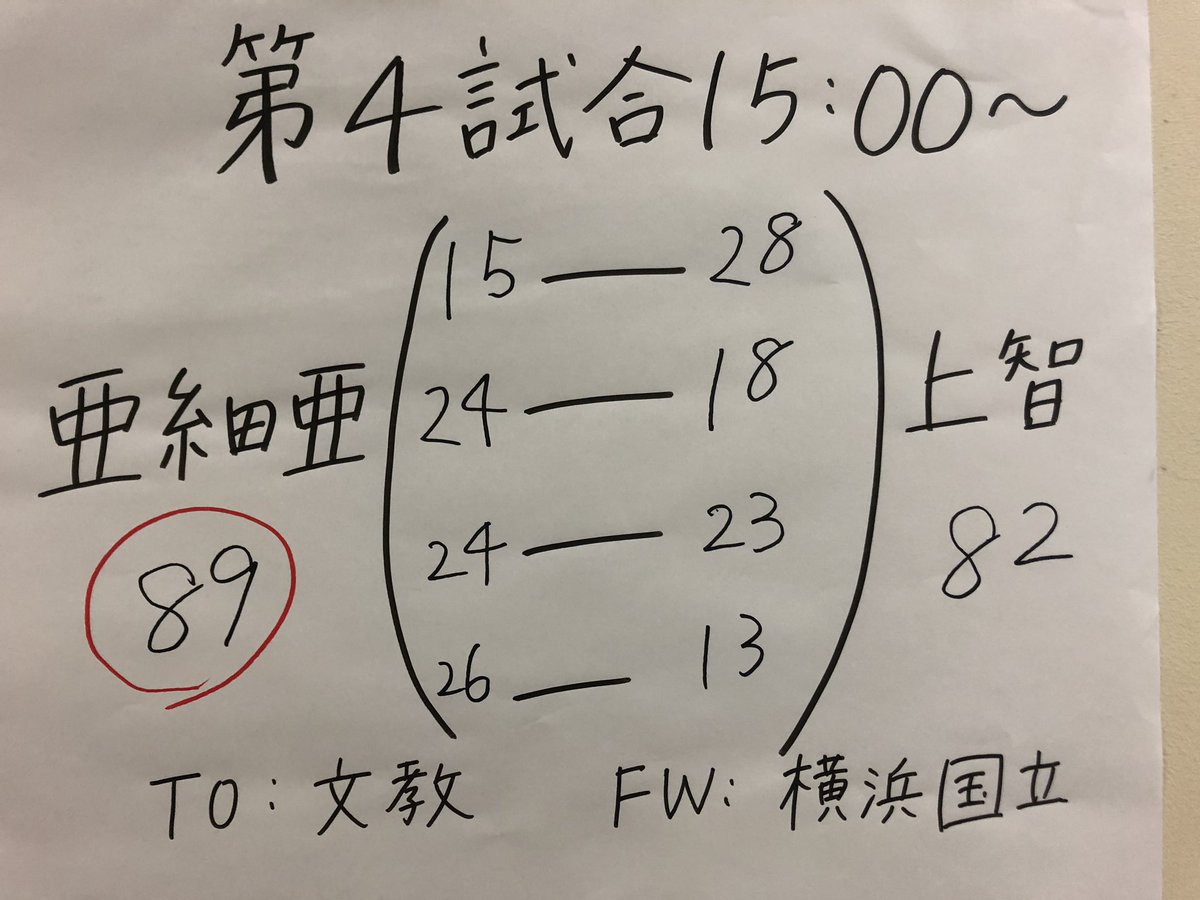 第4試合15:00~
15 — 28
24 — 18
亜細亜 上智
24 — 23
89 82
26 — 13
TO:文教 FW:横浜国立